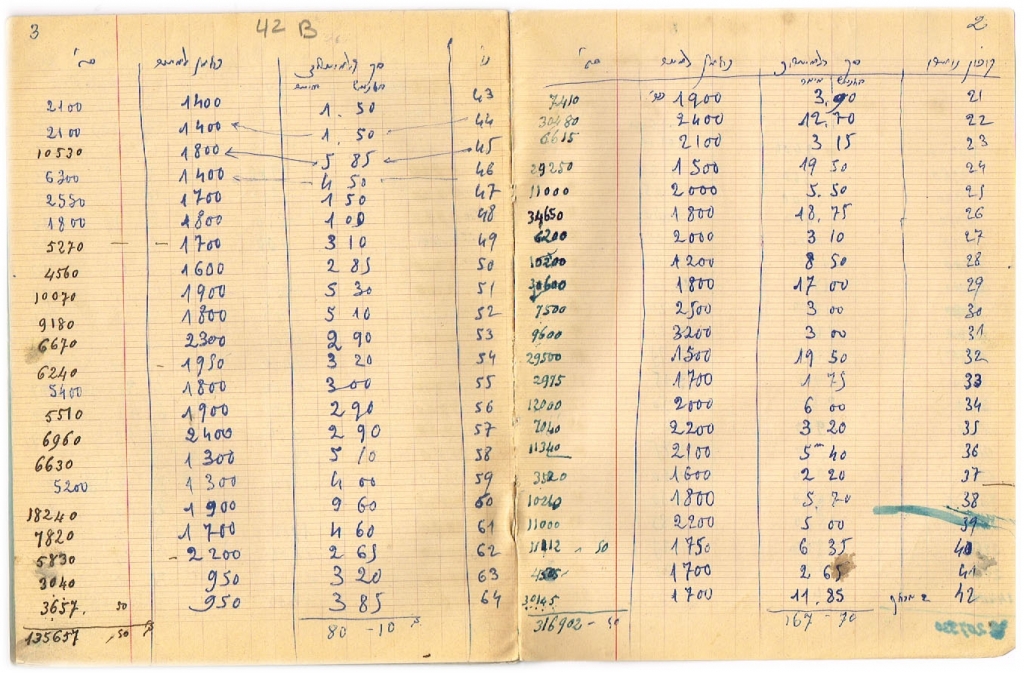 2
קופון
21 3,90 1900 7410
22 12,70 2400 30480
23 3 15 2100 6615
24 19 50 1500 29250
25 5.50 2000 11000
26 18,75 1800 34650
27 3 10 2000 6200
28 8 50 1200 10200
29 17 00 1800 30600
30 3 00 2500 7500
31 3 00 3200 9600
32 19 50 1500 29500
33 1 75 1700 2975
34 6 00 2000 12000
35 3 20 2200 7040
36 5 40 2100 11340
37 2 20 1600 3520
38 5.70 1800 10260
39 5 00 2200 11000
40 6 35 1750 11112 - 50
41 2 65 1700 4505
42 11.85 1700 20145
167 - 70 316902 - 50
3
42 B
43 1.50 1400 2100
44 1.50 1400 2100
45 5 85 1800 10530
46 4 50 1400 6300
47 1 50 1700 2550
48 1 00 1800 1800
49 3 10 1700 5270
50 2 85 1600 4560
51 5 30 1900 10070
52 5 10 1800 9180
53 2 90 2300 6670
54 3 20 1950 6240
55 3 00 1800 5400
56 2 90 1900 5510
57 2 90 2400 6960
58 5 10 1300 6630
59 4 00 1300 5200
60 9 60 1900 18240
61 4 60 1700 7820
62 2 65 2200 5830
63 3 20 950 3040
64 3 85 950 3657. 50
80 - 10 135657, 50